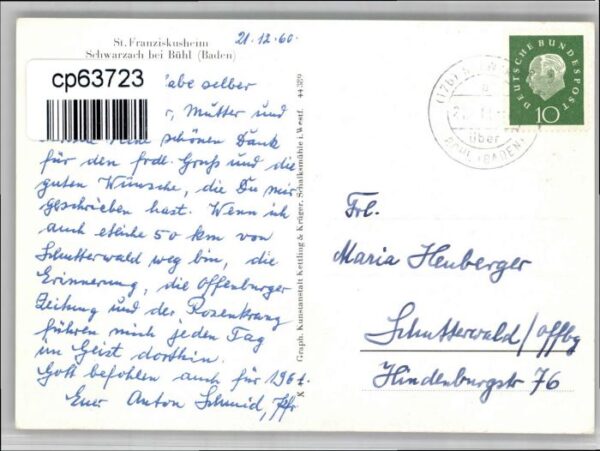 St. Franziskusheim
Schwarzach bei Bühl (Baden)
21.12.60.
cp63723
abe selber
, Mutter und
schönen Dank
für den frdl. Gruß und die
guten Wünsche, die Du mir
geschrieben hast. Wenn ich
auch etliche 50 km von
Schutterwald weg bin, die
Erinnerung, die Offenburger
Zeitung und der Rosenkranz
führen mich jeden Tag
im Geist dorthin.
Gott befohlen auch für 1961.
Euer Anton Schmid, Pfr
Graph. Kunstanstalt Kettling & Krüger, Schalksmühle i. Westf. 44389
(17b)
über
BÜHL (BADEN)
DEUTSCHE BUNDESPOST
10
Frl.
Maria Heuberger
Schutterwald/Offbg
Hindenburgstr 76